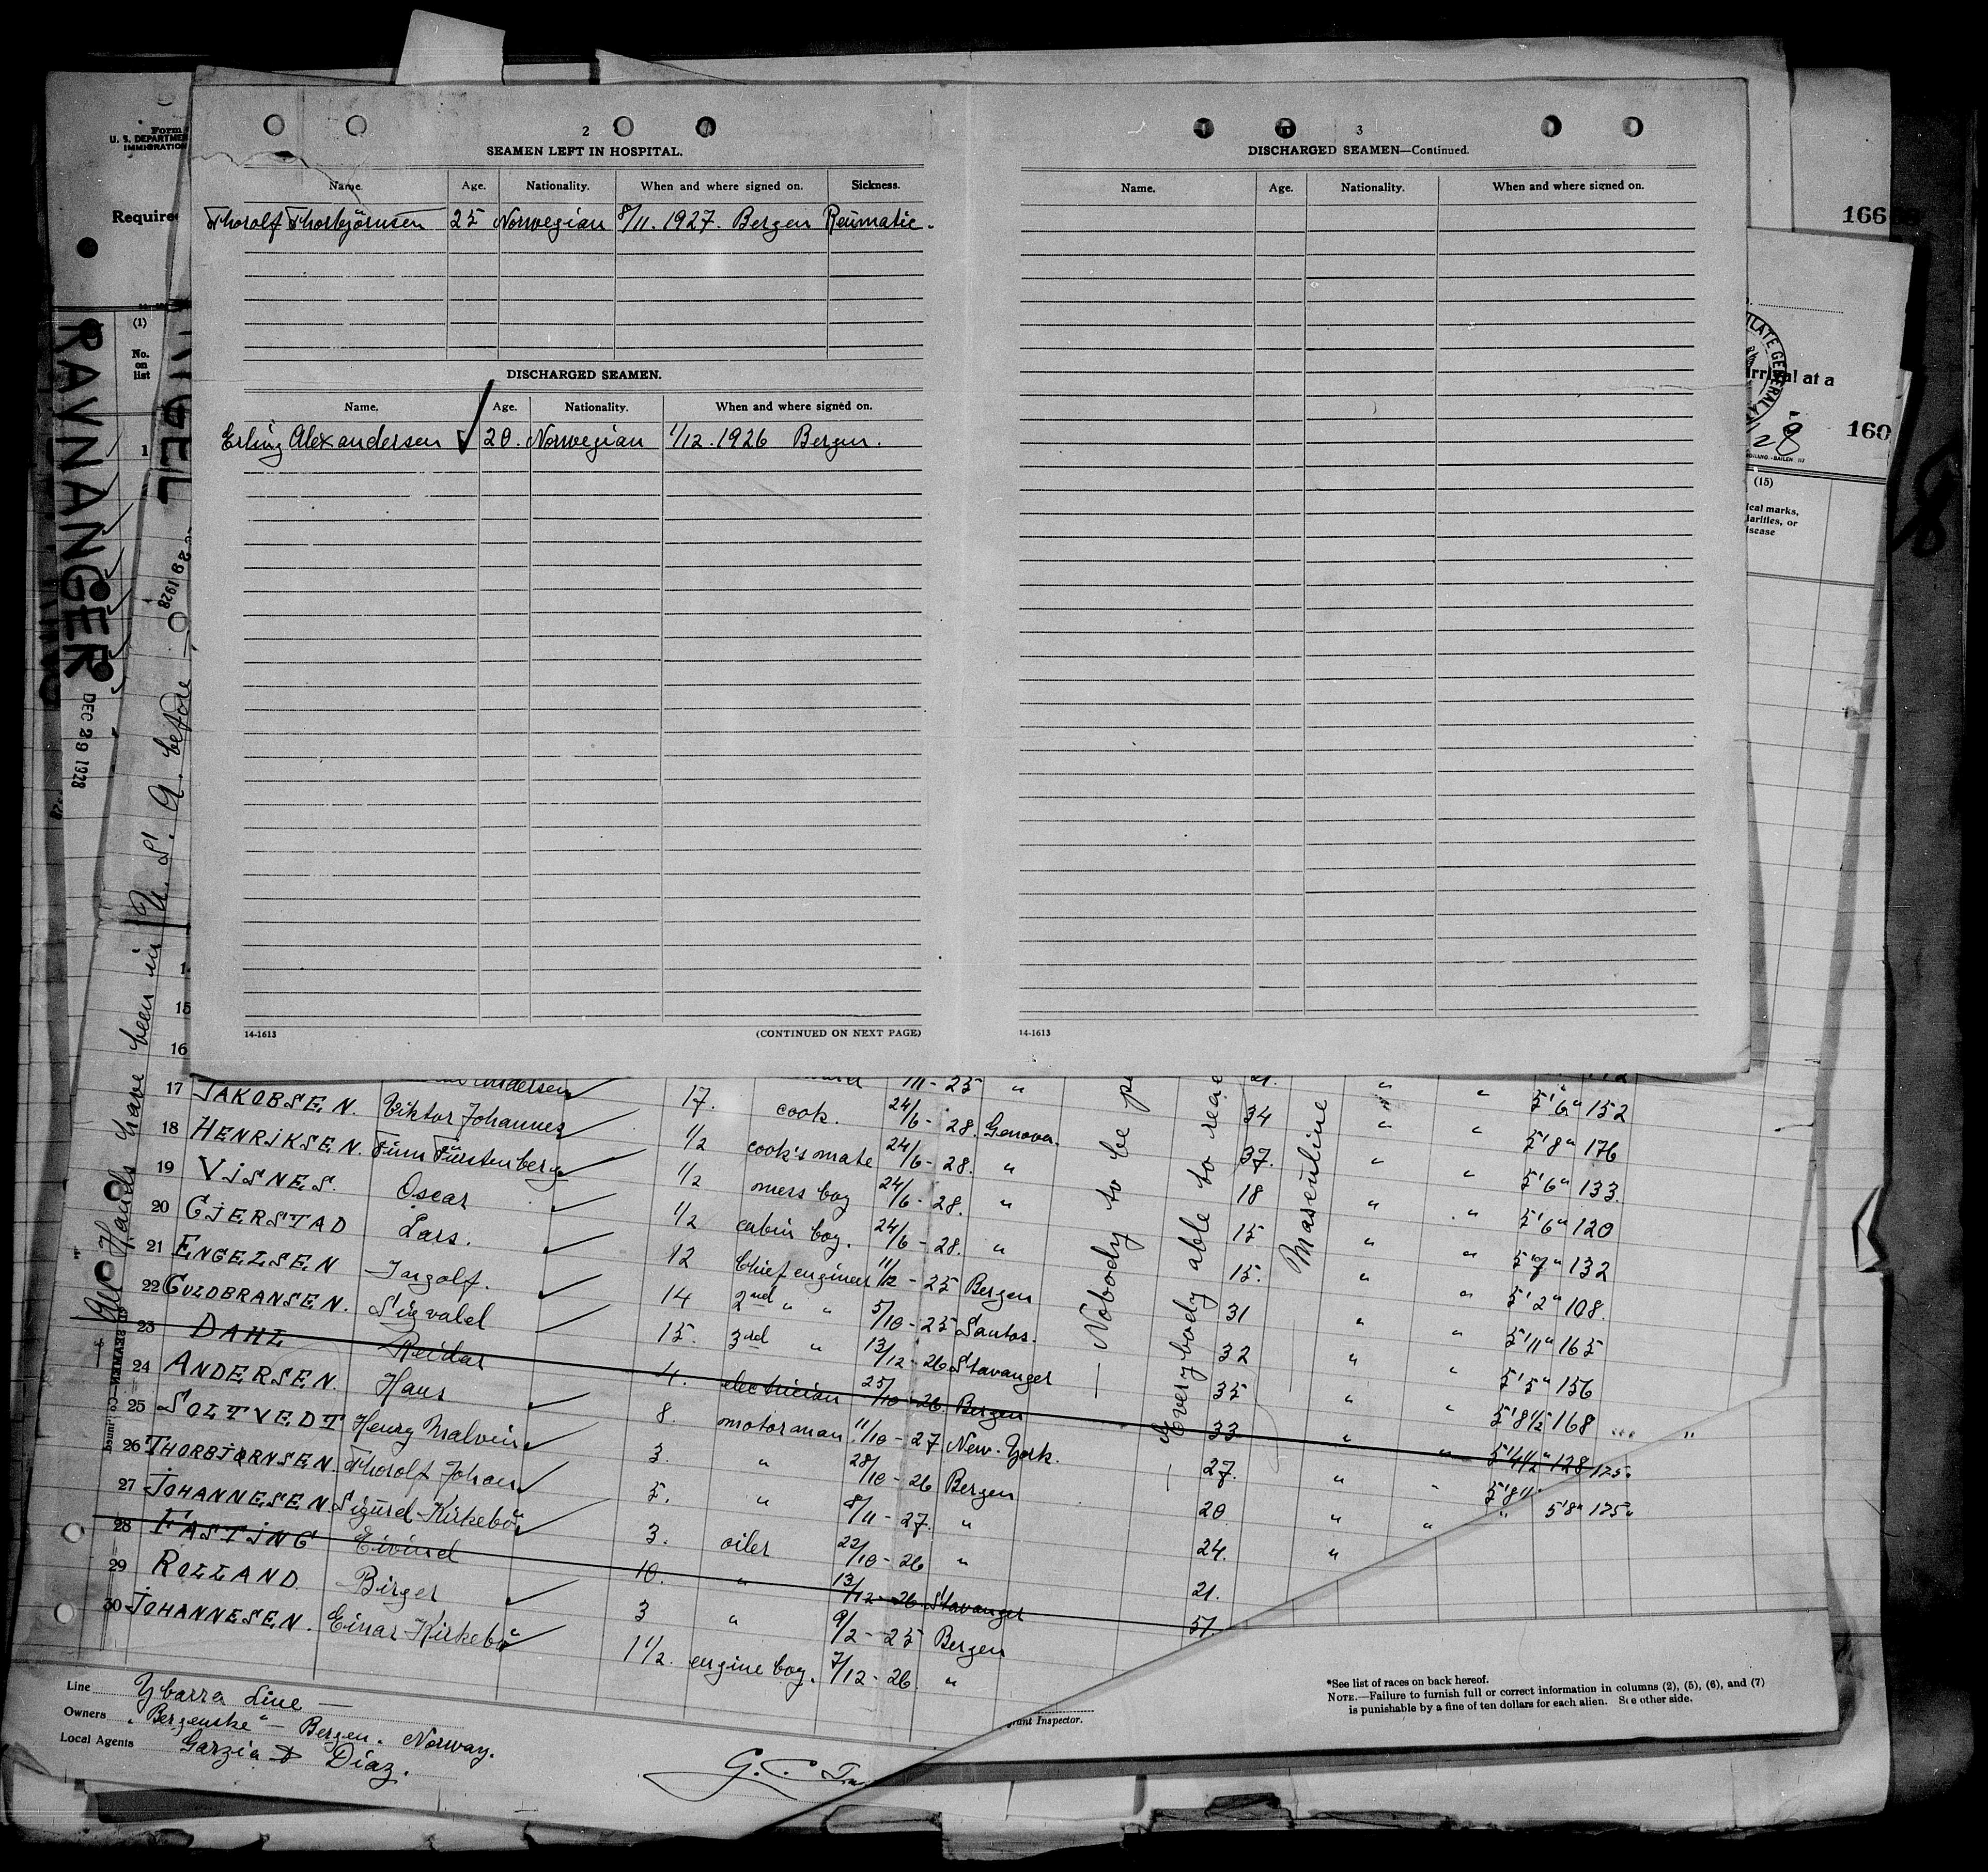 Form
U. S. DEPARTME
IMMIGRATION
Require
(1)
No.
on
list
1
RAVNANGER
DEC 29 1928
29 1928
All Hands have been in U. S. A. before
2
SEAMEN LEFT IN HOSPITAL.
Name. Age. Nationality. When and where signed on. Sickness.
Thorolf Thorbjörnsen 25 Norwegian 8/11. 1927. Bergen Reumatic.
DISCHARGED SEAMEN.
Name. Age. Nationality. When and where signed on.
Erling Alexandersen 20. Norwegian 1/12. 1926 Bergen.
14-1613 (CONTINUED ON NEXT PAGE)
3
DISCHARGED SEAMEN—Continued.
Name. Age. Nationality. When and where signed on.
14-1613
166
ILATE GENERAL
rrival at a
160
(15)
ical marks,
larities, or
isease
15
16
Andersen 17. 111-25 " 21.
17 JAKOBSEN. Viktor Johannes 1/2 cook. 24/6-28. Genova. 34 " " 5'6" 152
18 HENRIKSEN. Finn Fürstenberg 1/2 cook's mate 24/6-28. " 37. " " 5'8" 176
19 VISNES. Oscar 1/2 mess boy 24/6-28. " 18 " " 5'6" 133.
20 GJERSTAD Lars. 1/2 cabin boy. 24/6-28. " 15 " " 5'6" 120
21 ENGELSEN Ingolf. 12 Chief engineer 11/12-25 Bergen 15. " " 5'7" 132
22 GULDBRANSEN. Sigvald 14 2nd " " 5/10-25 Santos. 31 " " 5'2" 108.
23 DAHL Reidar 15. 3rd " 13/12-26 Stavanger 32 " " 5'11" 165
24 ANDERSEN. Hans 4. electrician 25/10-26 Bergen 35 " " 5'5" 156
25 SOLTVEDT Henry Malvin 8. motorman 11/10-27 New-York. 33 " " 5'8½" 168
26 THORBJØRNSEN. Thorolf Johan 3. " 28/10-26 Bergen 27. " " 5'4½" 128 125.
27 JOHANNESEN Sigurd-Kirkebö 5. " 8/11-27. " 20 " " 5'8" 5'8" 125
28 FASTING Eivind 3. oiler 22/10-26 " 24. "
29 ROLLAND. Birger 10. " 13/12-26 Stavanger 21.
30 JOHANNESEN. Einar-Kirkebö 3 " 9/2-25 Bergen 51.
1½. engine boy. 7/12-26 "
— Nobody to be
Everybody able to read
Masculine
Line Ybarra Line —
Owners "Bergenske" — Bergen. Norway.
Local Agents Garzia & Diaz.
G. C.
rant Inspector.
*See list of races on back hereof.
NOTE.—Failure to furnish full or correct information in columns (2), (5), (6), and (7)
is punishable by a fine of ten dollars for each alien. See other side.